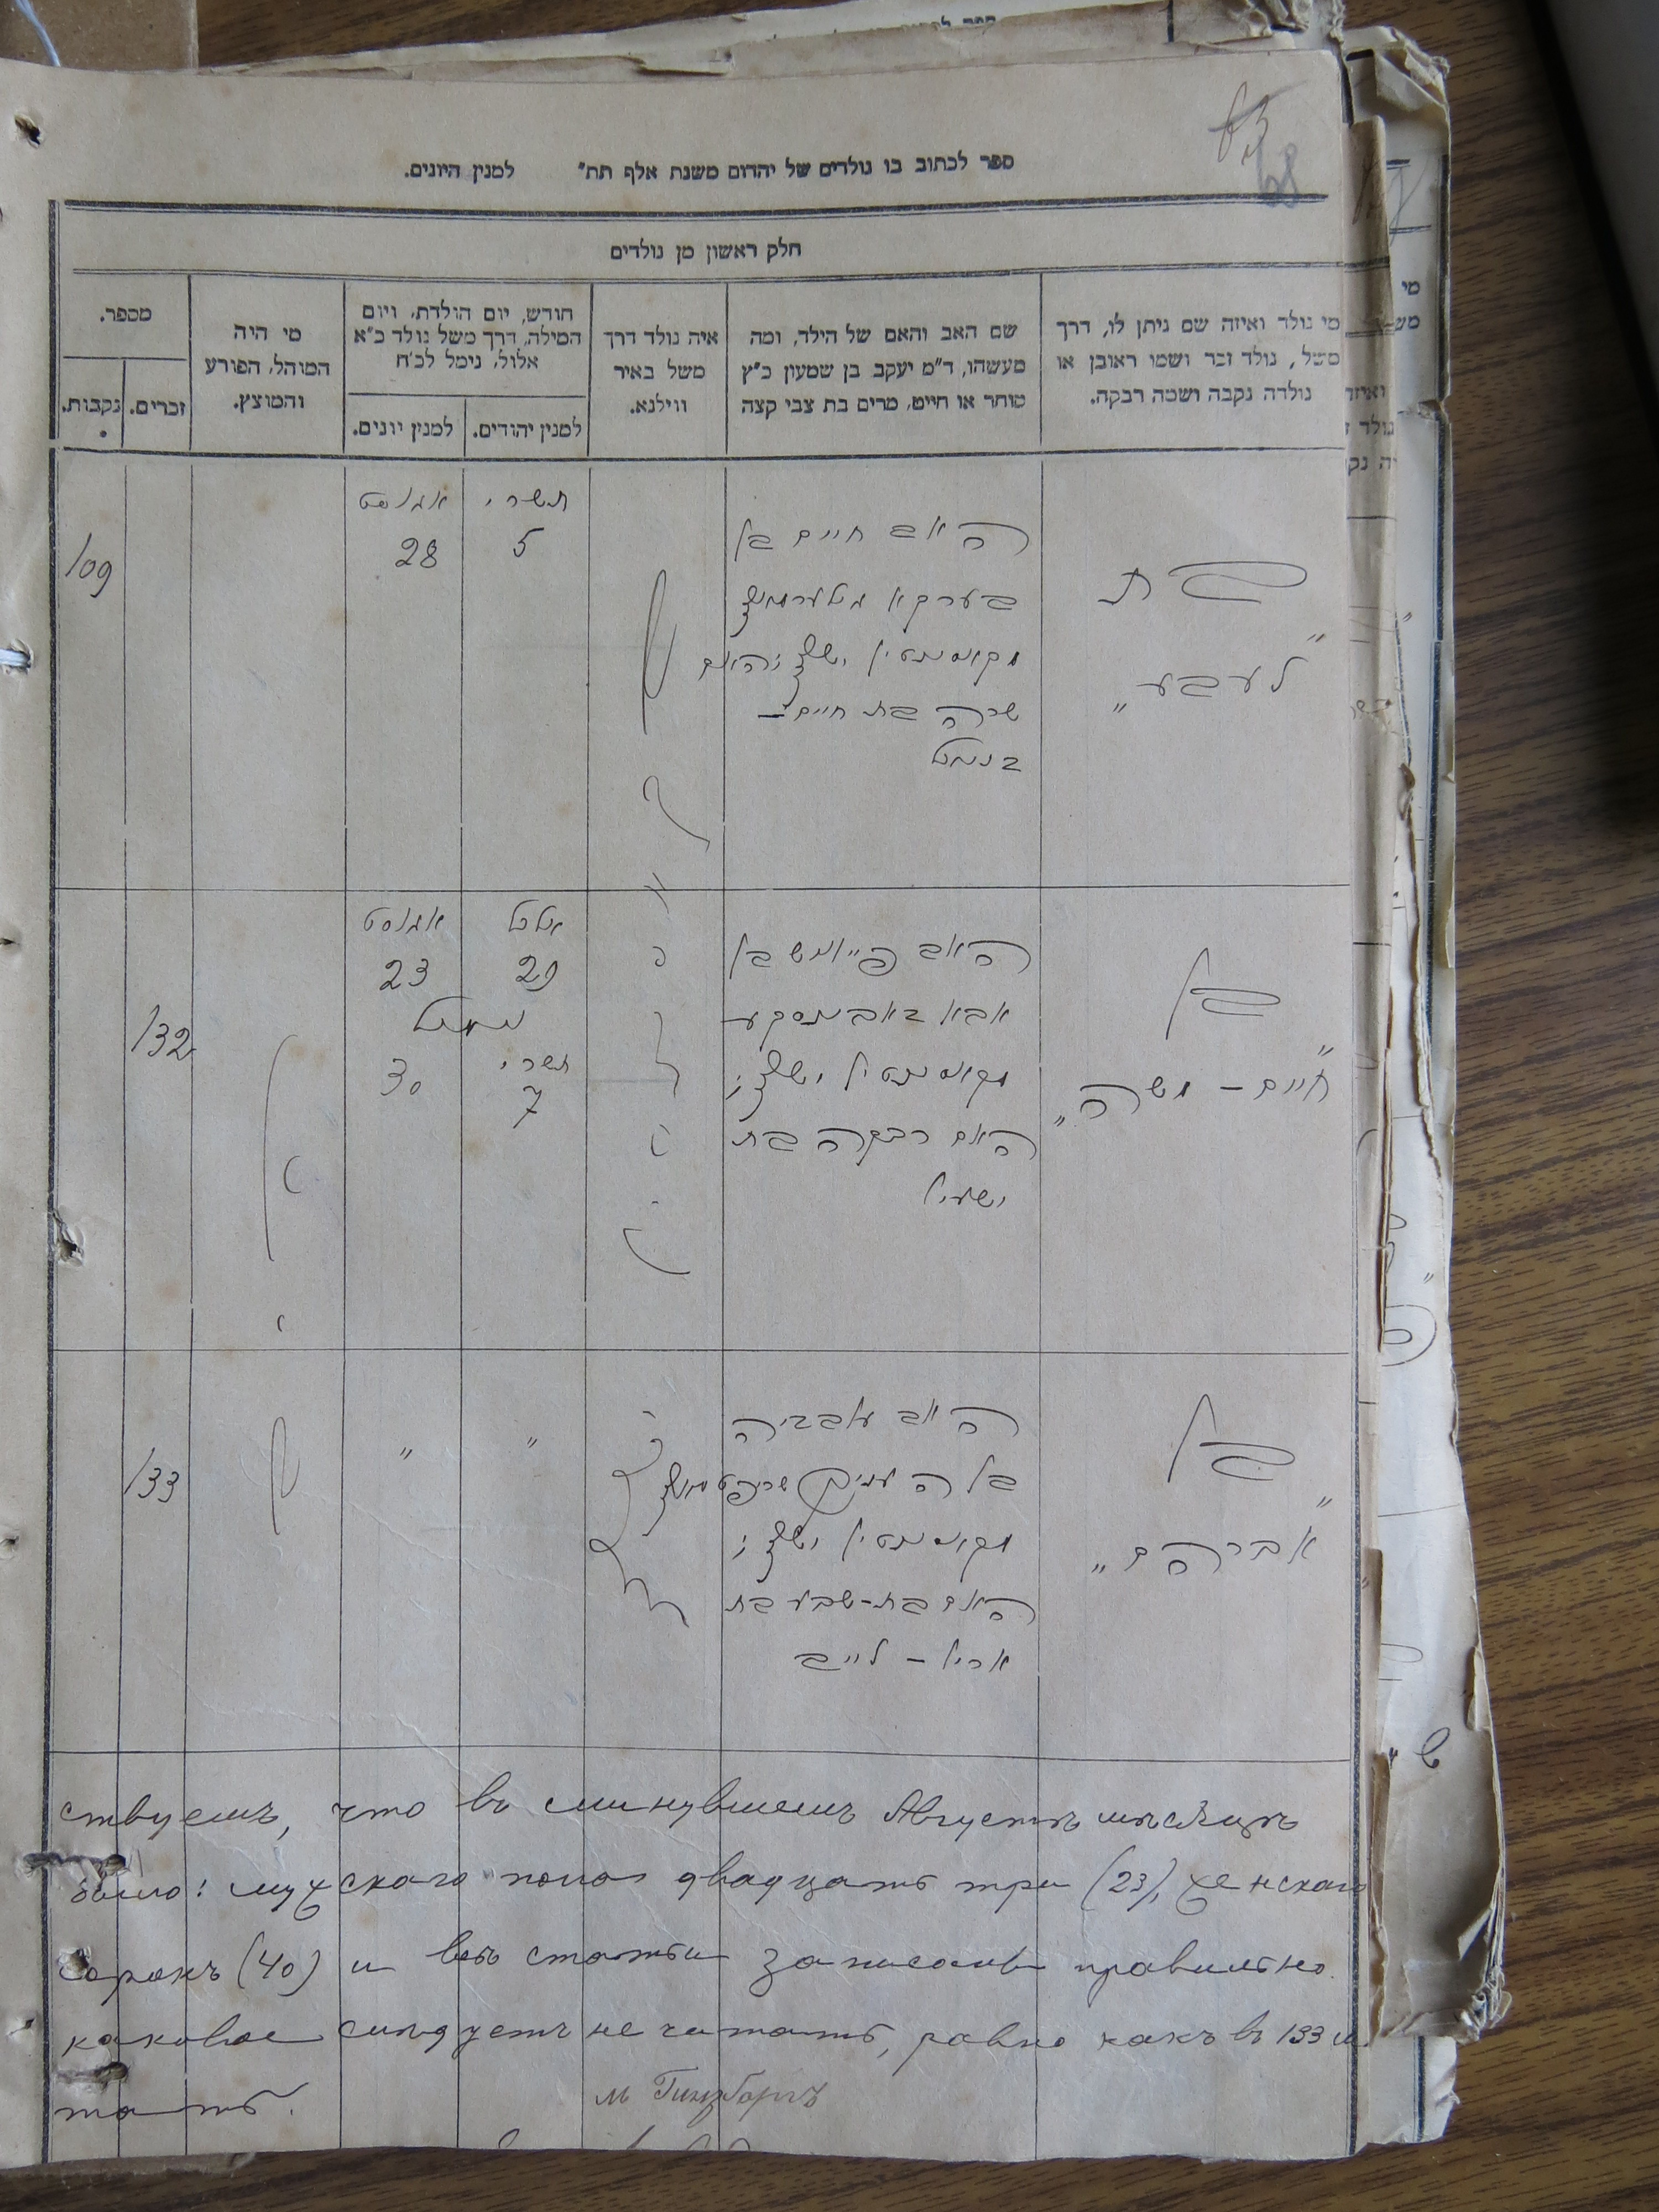 63
68
ספר לכתוב בו נולדים של יהדום משנת אלף תת״ למנין היונים.
חלק ראשון מן נולדים
מי נולד ואיזה שם ניתן לו, דרך
משל, נולד זכר ושמו ראובן או
נולדה נקבה ושמה רבקה.
שם האב והאם של הילד, ומה
מעשהו, ד״מ יעקב בן שמעון כ״ץ
סוחר או חייט, מרים בת צבי קצה
איה נולד דרך
משל באיר
ווילנא.
חודש, יום הולדת, ויום
המילה, דרך משל נולד כ״א
אלול, נימל לכ״ח
למנין יהודים.
למנין יונים.
מי היה
המוהל, הפורע
והמוצץ.
מספר.
זכרים.
נקבות.
בת
"לעבע"
האב חיים בן
בערקא
שרה בת חיים
תשרי
5
אוגוסט
28
109
בן
"חיים - משה"
האב פייוש בן
אבא
האם רבקה בת
אלול
29
תשרי
7
אוגוסט
23
נימול
30
132
בן
"אברהם"
האב עובדיה
האם בת-שבע בת
לייב
"
"
133
ствуемъ, что въ минувшемъ Августѣ мѣсяцѣ
было: мужскаго пола двадцать три (23), женскаго
сорокъ (40) и всѣ статьи записаны правильно.
каковое слѣдуетъ не читать, равно какъ въ 133 и
тать.
М Гинзбургъ